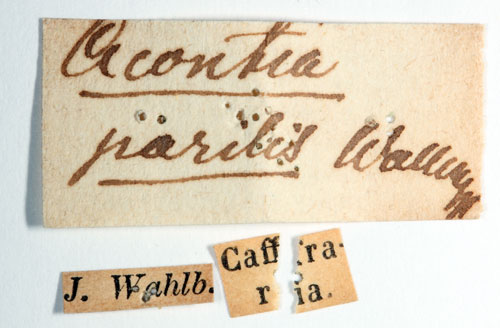 Acontia
parilis Wallengr
J. Wahlb.
Caffra-
ria.